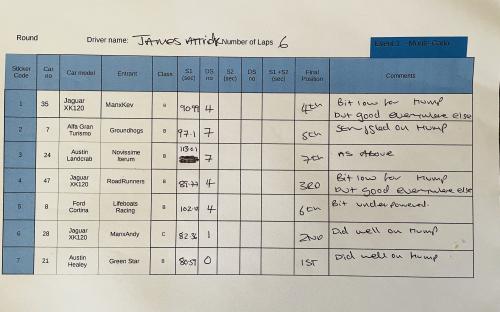 Round
Driver name: JAMES Attrick Number of Laps 6
Event 1 - Monte Carlo
Sticker Code Car no Car model Entrant Class S1 (sec) DS no S2 (sec) DS no S1 +S2 (sec) Final Position Comments
1 35 Jaguar XK120 ManxKev B 90.99 4 4th Bit low for Hump but good everywhere else
2 7 Alfa Gran Turismo Groundhogs B 97.1 7 5th Struggled on Hump
3 24 Austin Landcrab Novissime Iberum B 113.01 7 7th As Above
4 47 Jaguar XK120 RoadRunners B 4 3RD Bit low for Hump but good everywhere else
5 8 Ford Cortina Lifeboats Racing B 4 6th Bit underpowered.
6 28 Jaguar XK120 ManxAndy C 82.36 1 2ND Did well on Hump
7 21 Austin Healey Green Star B 80.59 0 1ST Did well on Hump